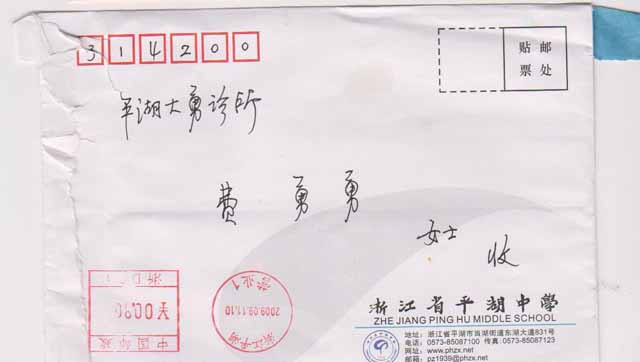 314200
贴 邮
票 处
平湖大勇诊所
费 勇 勇
女士 收
浙江平湖
2009.09.11.10
营业1
中国邮政
浙江省平湖中學
ZHE JIANG PING HU MIDDLE SCHOOL
地址: 浙江省平湖市当湖街道东湖大道831号
电话: 0573-85087100 传真:0573-85087123
网址: www.phzx.net
邮箱:pz1939@phzx.com